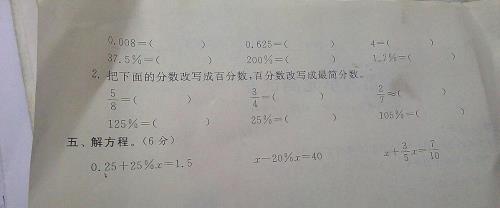 0.008=( ) 0.625=( ) 4=( )
37.5%=( ) 200%=( ) 1.2%=( )
2. 把下面的分数改写成百分数,百分数改写成最简分数。
5/8=( ) 3/4=( ) 2/7≈( )
125%=( ) 25%=( ) 105%=( )
五、解方程。(6分)
0.25+25%x=1.5 x-20%x=40 x+3/5x=7/10